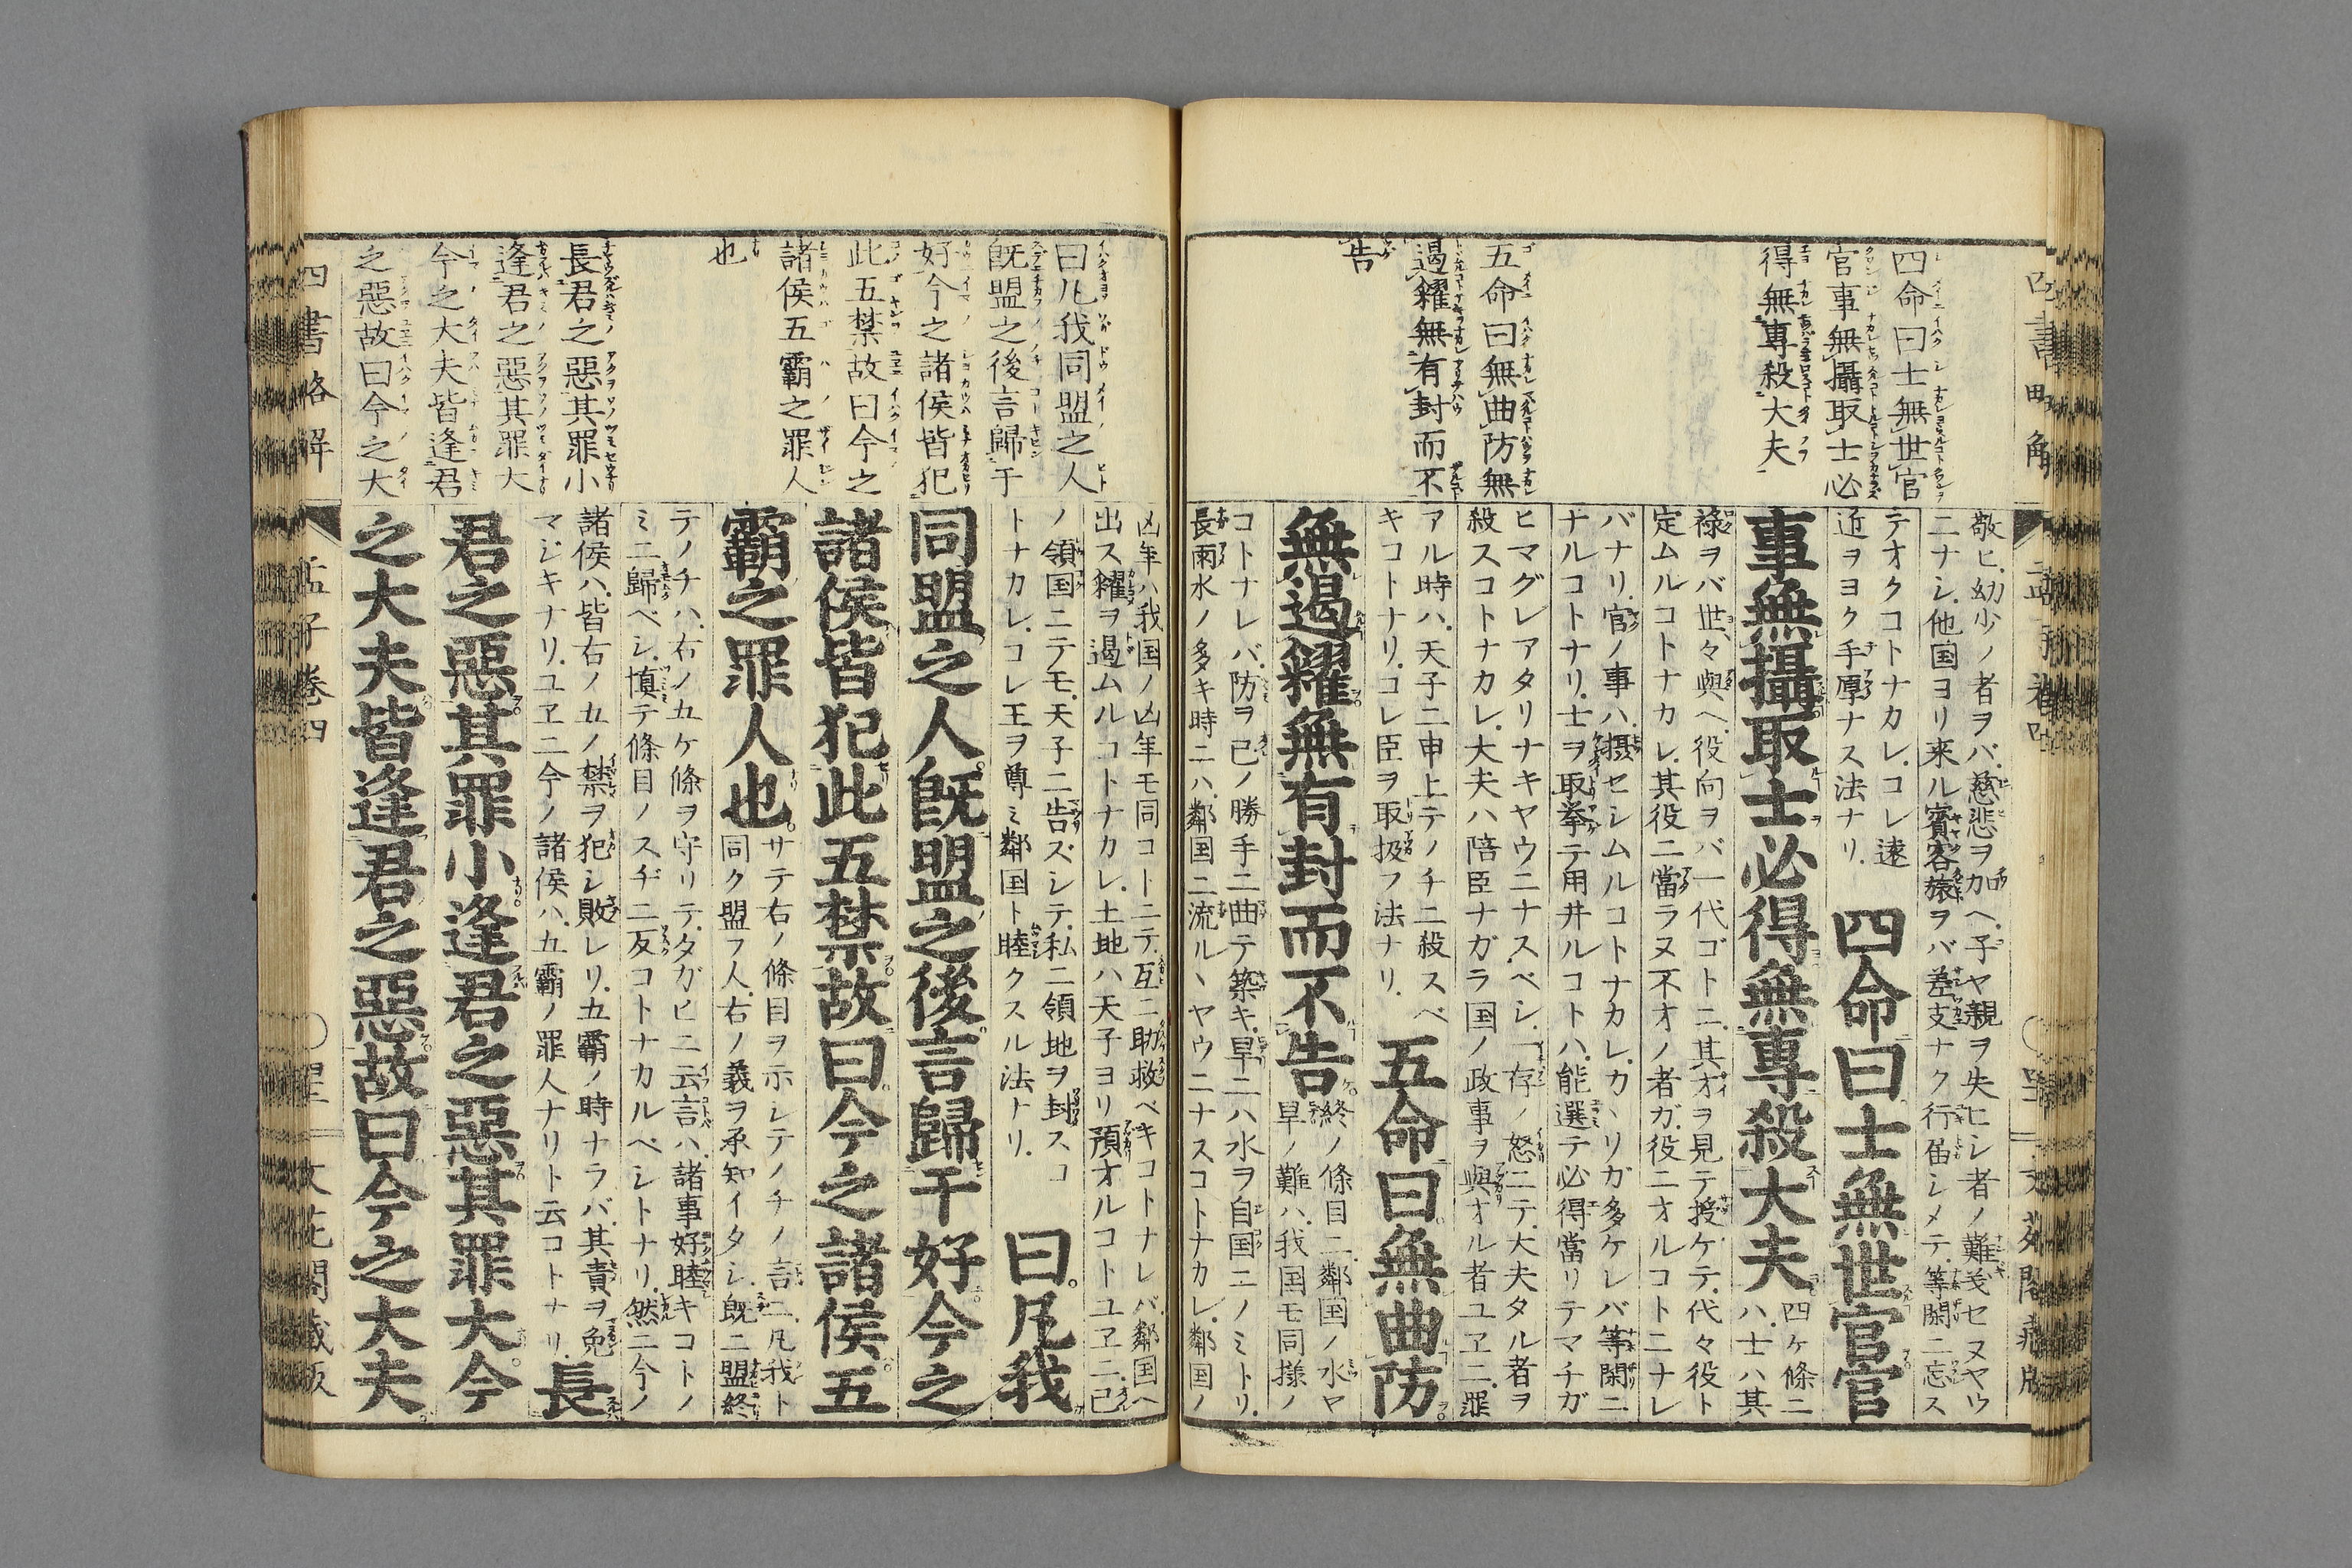 四命曰士無世官
官事無攝取士必
得無專殺大夫
五命曰無曲防無
遏糴無有封而不
告
敬ヒ幼少ノ者ヲバ慈悲ヲ加ヘ子ヤ親ヲ失ヒシ者ノ難義セヌヤウ
ニナシ他国ヨリ来ル賓客旅ヲバ差支ナク行届シメテ等閑ニ忘ス
テオクコトナカレコレ遠
近ヲヨク手厚ナス法ナリ
四命曰士無世官官
事無攝取士必得無專殺大夫
四ケ條ニ
ハ士ハ其
祿ヲバ世々與ヘ役向ヲバ一代ゴトニ其オヲ見テ授ケテ代々役ト
定ムルコトナカレ其役ニ當ラヌ不オノ者ガ役ニオルコトニナレ
バナリ官ノ事ハ摂セシムルコトナカレカヽリガ多ケレバ等閑ニ
ナルコトナリ士ヲ取挙テ用井ルコトハ能選テ必得當リテマチガ
ヒマグレアタリナキヤウニナスベシ一存ノ怒ニテ大夫タル者ヲ
殺スコトナカレ大夫ハ陪臣ナガラ国ノ政事ヲ與オル者ユヱニ罪
アル時ハ天子ニ申上テノチニ殺スベ
キコトナリコレ臣ヲ取扱フ法ナリ
五命曰無曲防
無遏糴無有封而不告
終ノ條目ニ鄰国ノ水ヤ
旱ノ難ハ我国モ同様ノ
コトナレバ防ヲ己ノ勝手ニ曲テ築キ旱ニハ水ヲ自国ニノミトリ
長雨水ノ多キ時ニハ鄰国ニ流ルヽヤウニナスコトナカレ鄰国ノ
四書略解
孟子卷四
曰凡我同盟之人
既盟之後言歸于
好今之諸侯皆犯
此五禁故曰今之
諸侯五霸之罪人
也
長君之惡其罪小
逢君之惡其罪大
今之大夫皆逢君
之惡故曰今之大
凶年ハ我国ノ凶年モ同コトニテ互ニ助救ベキコトナレバ鄰国ヘ
出ス糴ヲ遏ムルコトナカレ土地ハ天子ヨリ預オルコトユヱニ己
ノ領国ニテモ天子ニ告ズシテ私ニ領地ヲ封スコ
トナカレコレ王ヲ尊ミ鄰国ト睦クスル法ナリ
曰凡我
同盟之人既盟之後言歸于好今之
諸侯皆犯此五禁故曰今之諸侯五
霸之罪人也
サテ右ノ條目ヲ示シテノチノ言ニ凡我ト
同ク盟フ人右ノ義ヲ承知イタシ既ニ盟終
テノチハ右ノ五ケ條ヲ守リテタガヒニ云言ハ諸事好睦キコトノ
ミニ歸ベシ慎テ條目ノスヂニ反コトナカルベシトナリ然ニ今ノ
諸侯ハ皆右ノ五ノ禁ヲ犯シ敗レリ五霸ノ時ナラバ其責ヲ免
マジキナリユヱニ今ノ諸侯ハ五霸ノ罪人ナリト云コトナリ
長
君之惡其罪小逢君之惡其罪大今
之大夫皆逢君之惡故曰今之大夫
四書略解
孟子卷四
文花閣蔵版